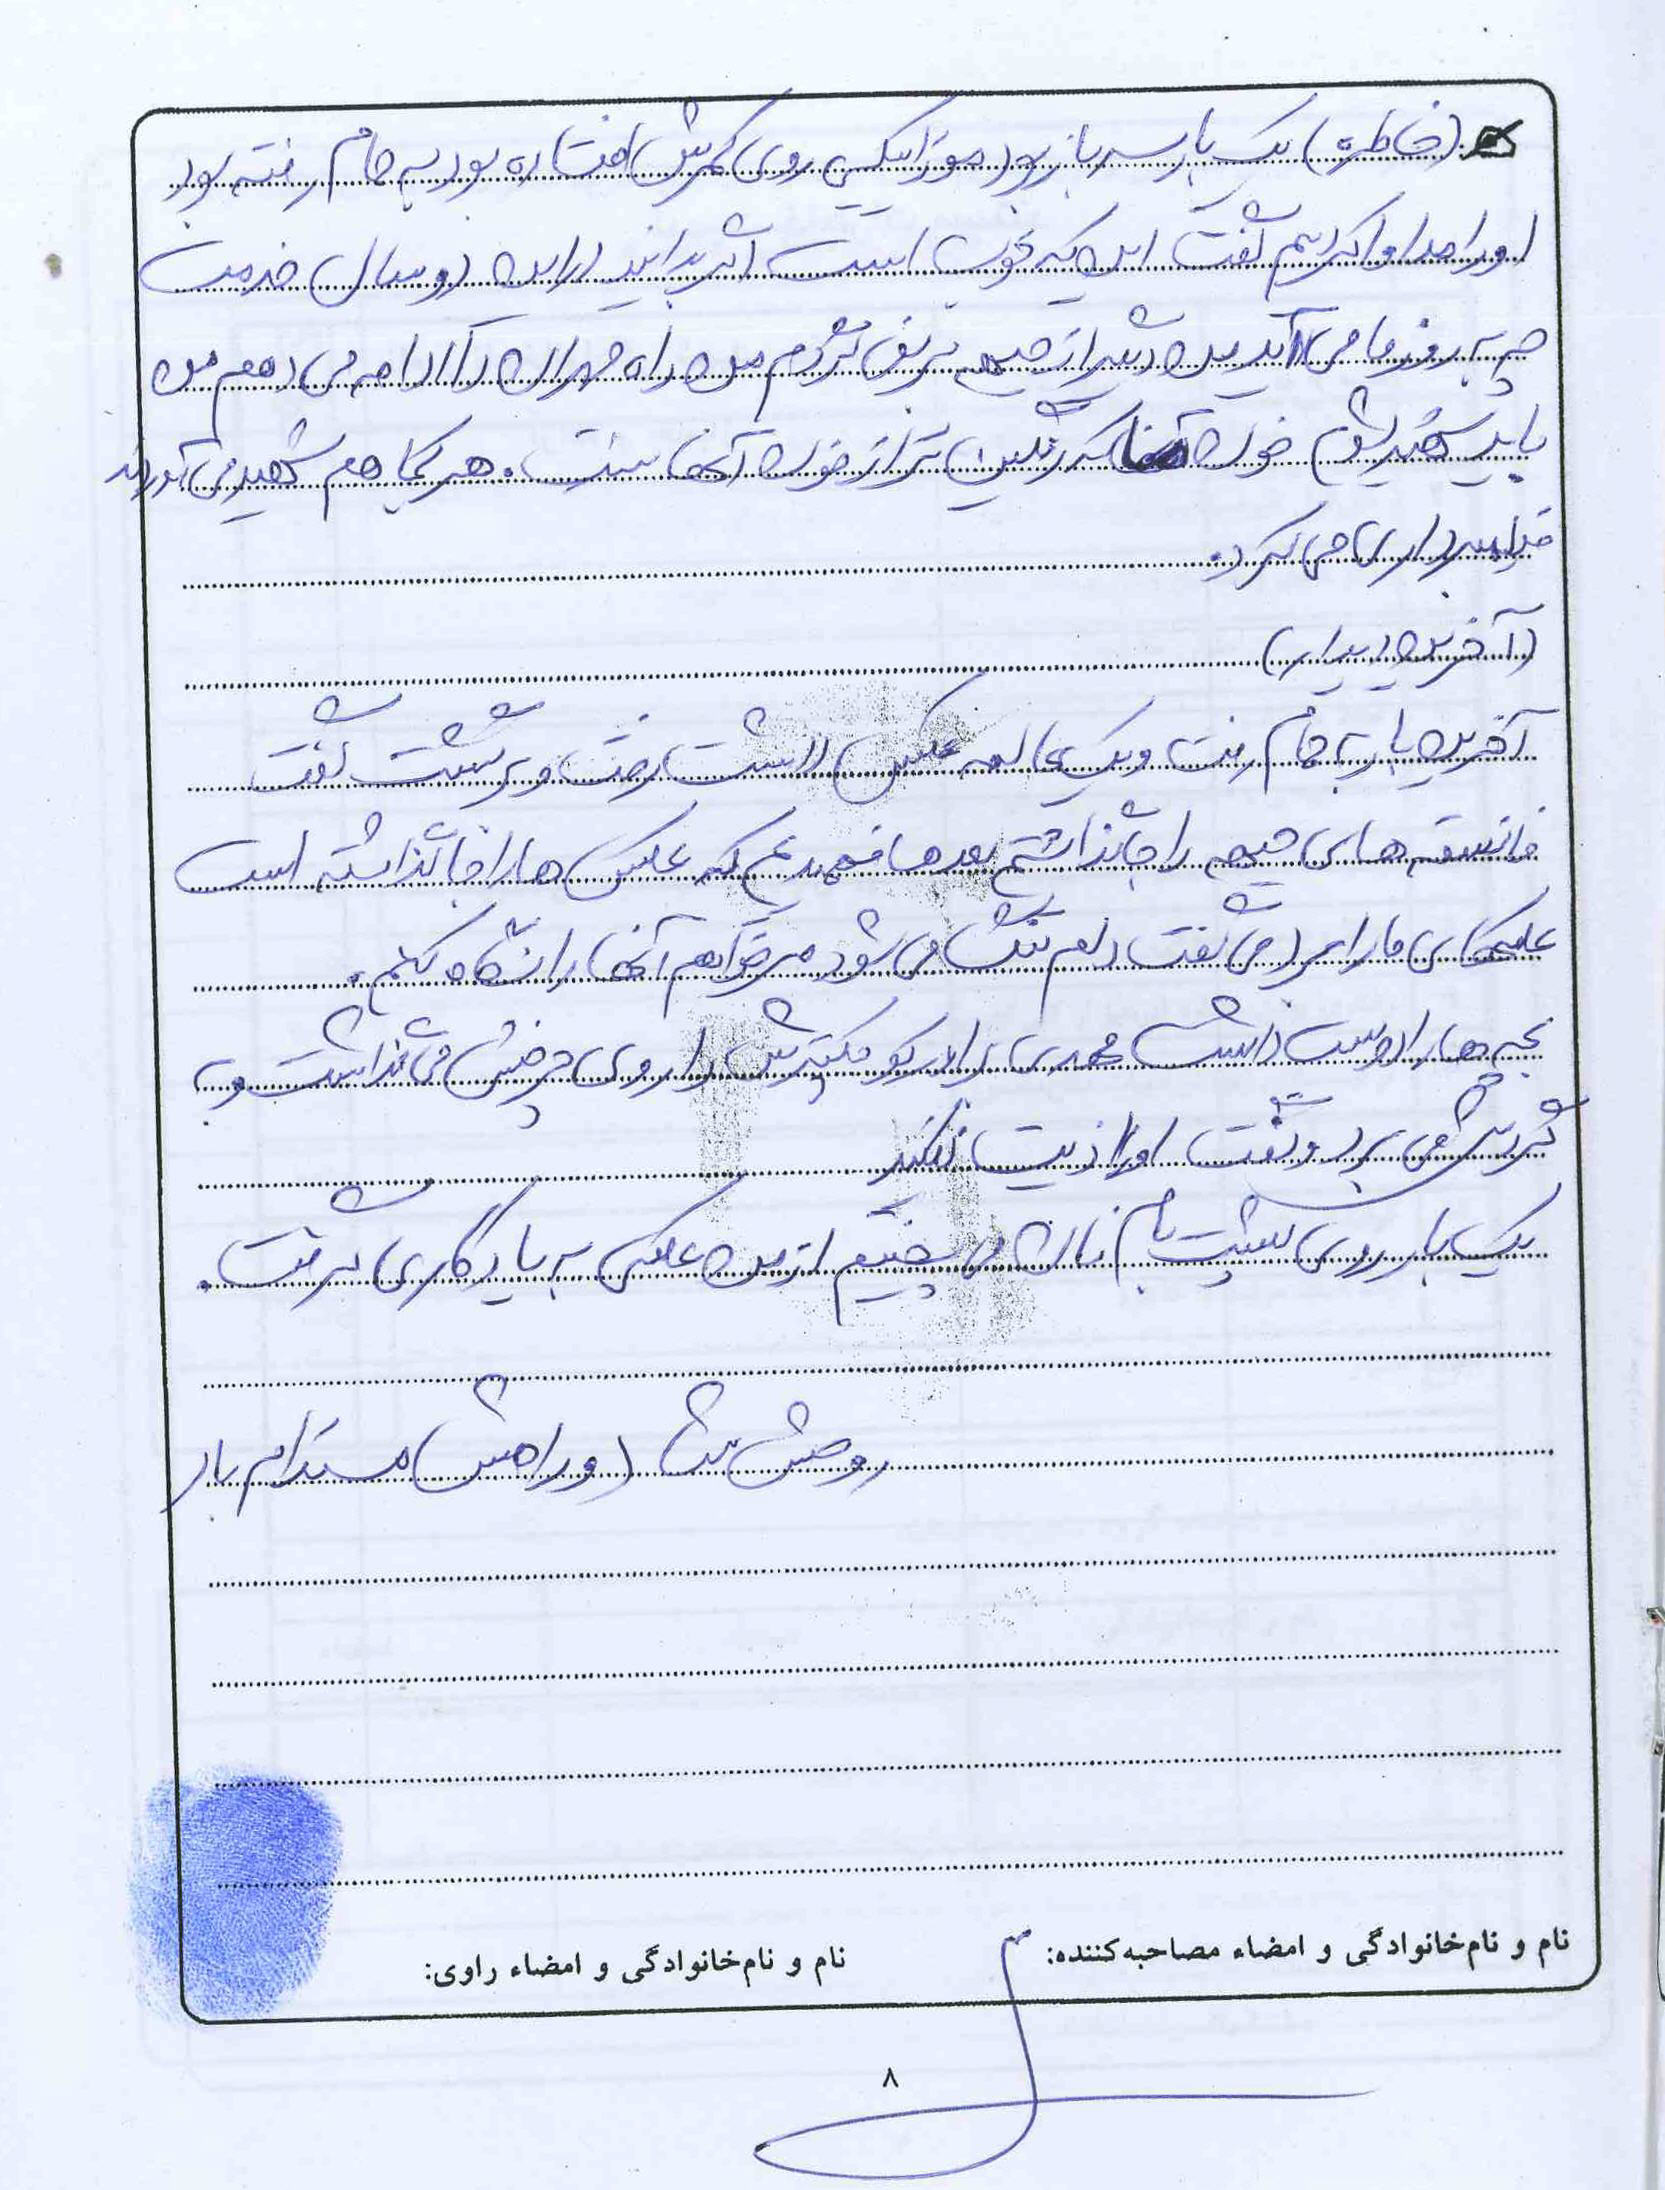 (خاطره) یک بار سرباز بود موزائیکی روی کمرش افتاده بود به حمام رفته بود
او را مداوا کردیم گفت این که خوب است اگر بدانید در این دو سال خدمت
چه به روز ما می آید من دیگر از جبهه برنمی گردم من راه مهران را ادامه می دهم من
باید شهید شوم خون ما که رنگین تر از خون آنها نیست. هر کجا هم شهید می آوردند
فیلمبرداری می کرد.
(آخرین دیدار)
آخرین بار به حمام رفت و یک عالمه عکس داشت رفت و برگشت گفت
فانسقه های جبهه را جا گذاشتم بعدها فهمیدیم که عکس ها را جا گذاشته است
عکسهای ما را برد می گفت دلم تنگ می شود می خواهم آنها را نگاه کنم.
بچه ها را دوست داشت مهدی برادر کوچکترش را روی چرخش می گذاشت و به
گردش می برد و می گفت او را اذیت نکنید
یک بار روی پشت بام نان می پختیم از من عکسی به یادگاری گرفت.
روحش شاد و راهش مستدام باد
نام و نام‌خانوادگی و امضاء مصاحبه‌کننده:
نام و نام‌خانوادگی و امضاء راوی:
۸